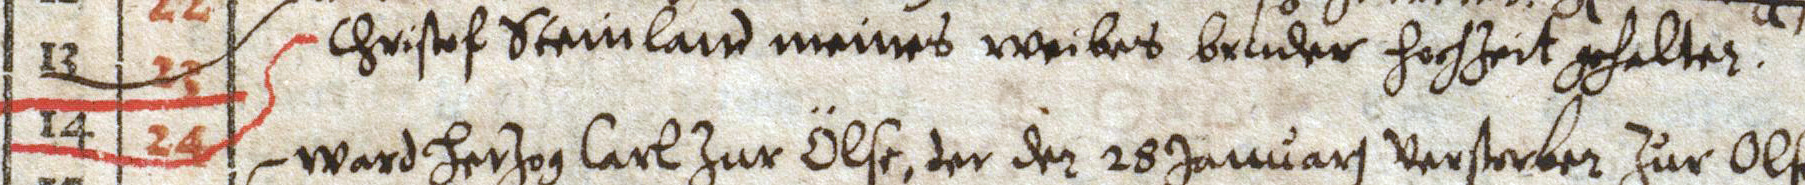 22
13 23 Christof Steinland meines weibes bruder hochzeit gehalten.
14 24 ward herzog Carl zur Ölse, der den 28 Januarj verstorben zur Ols